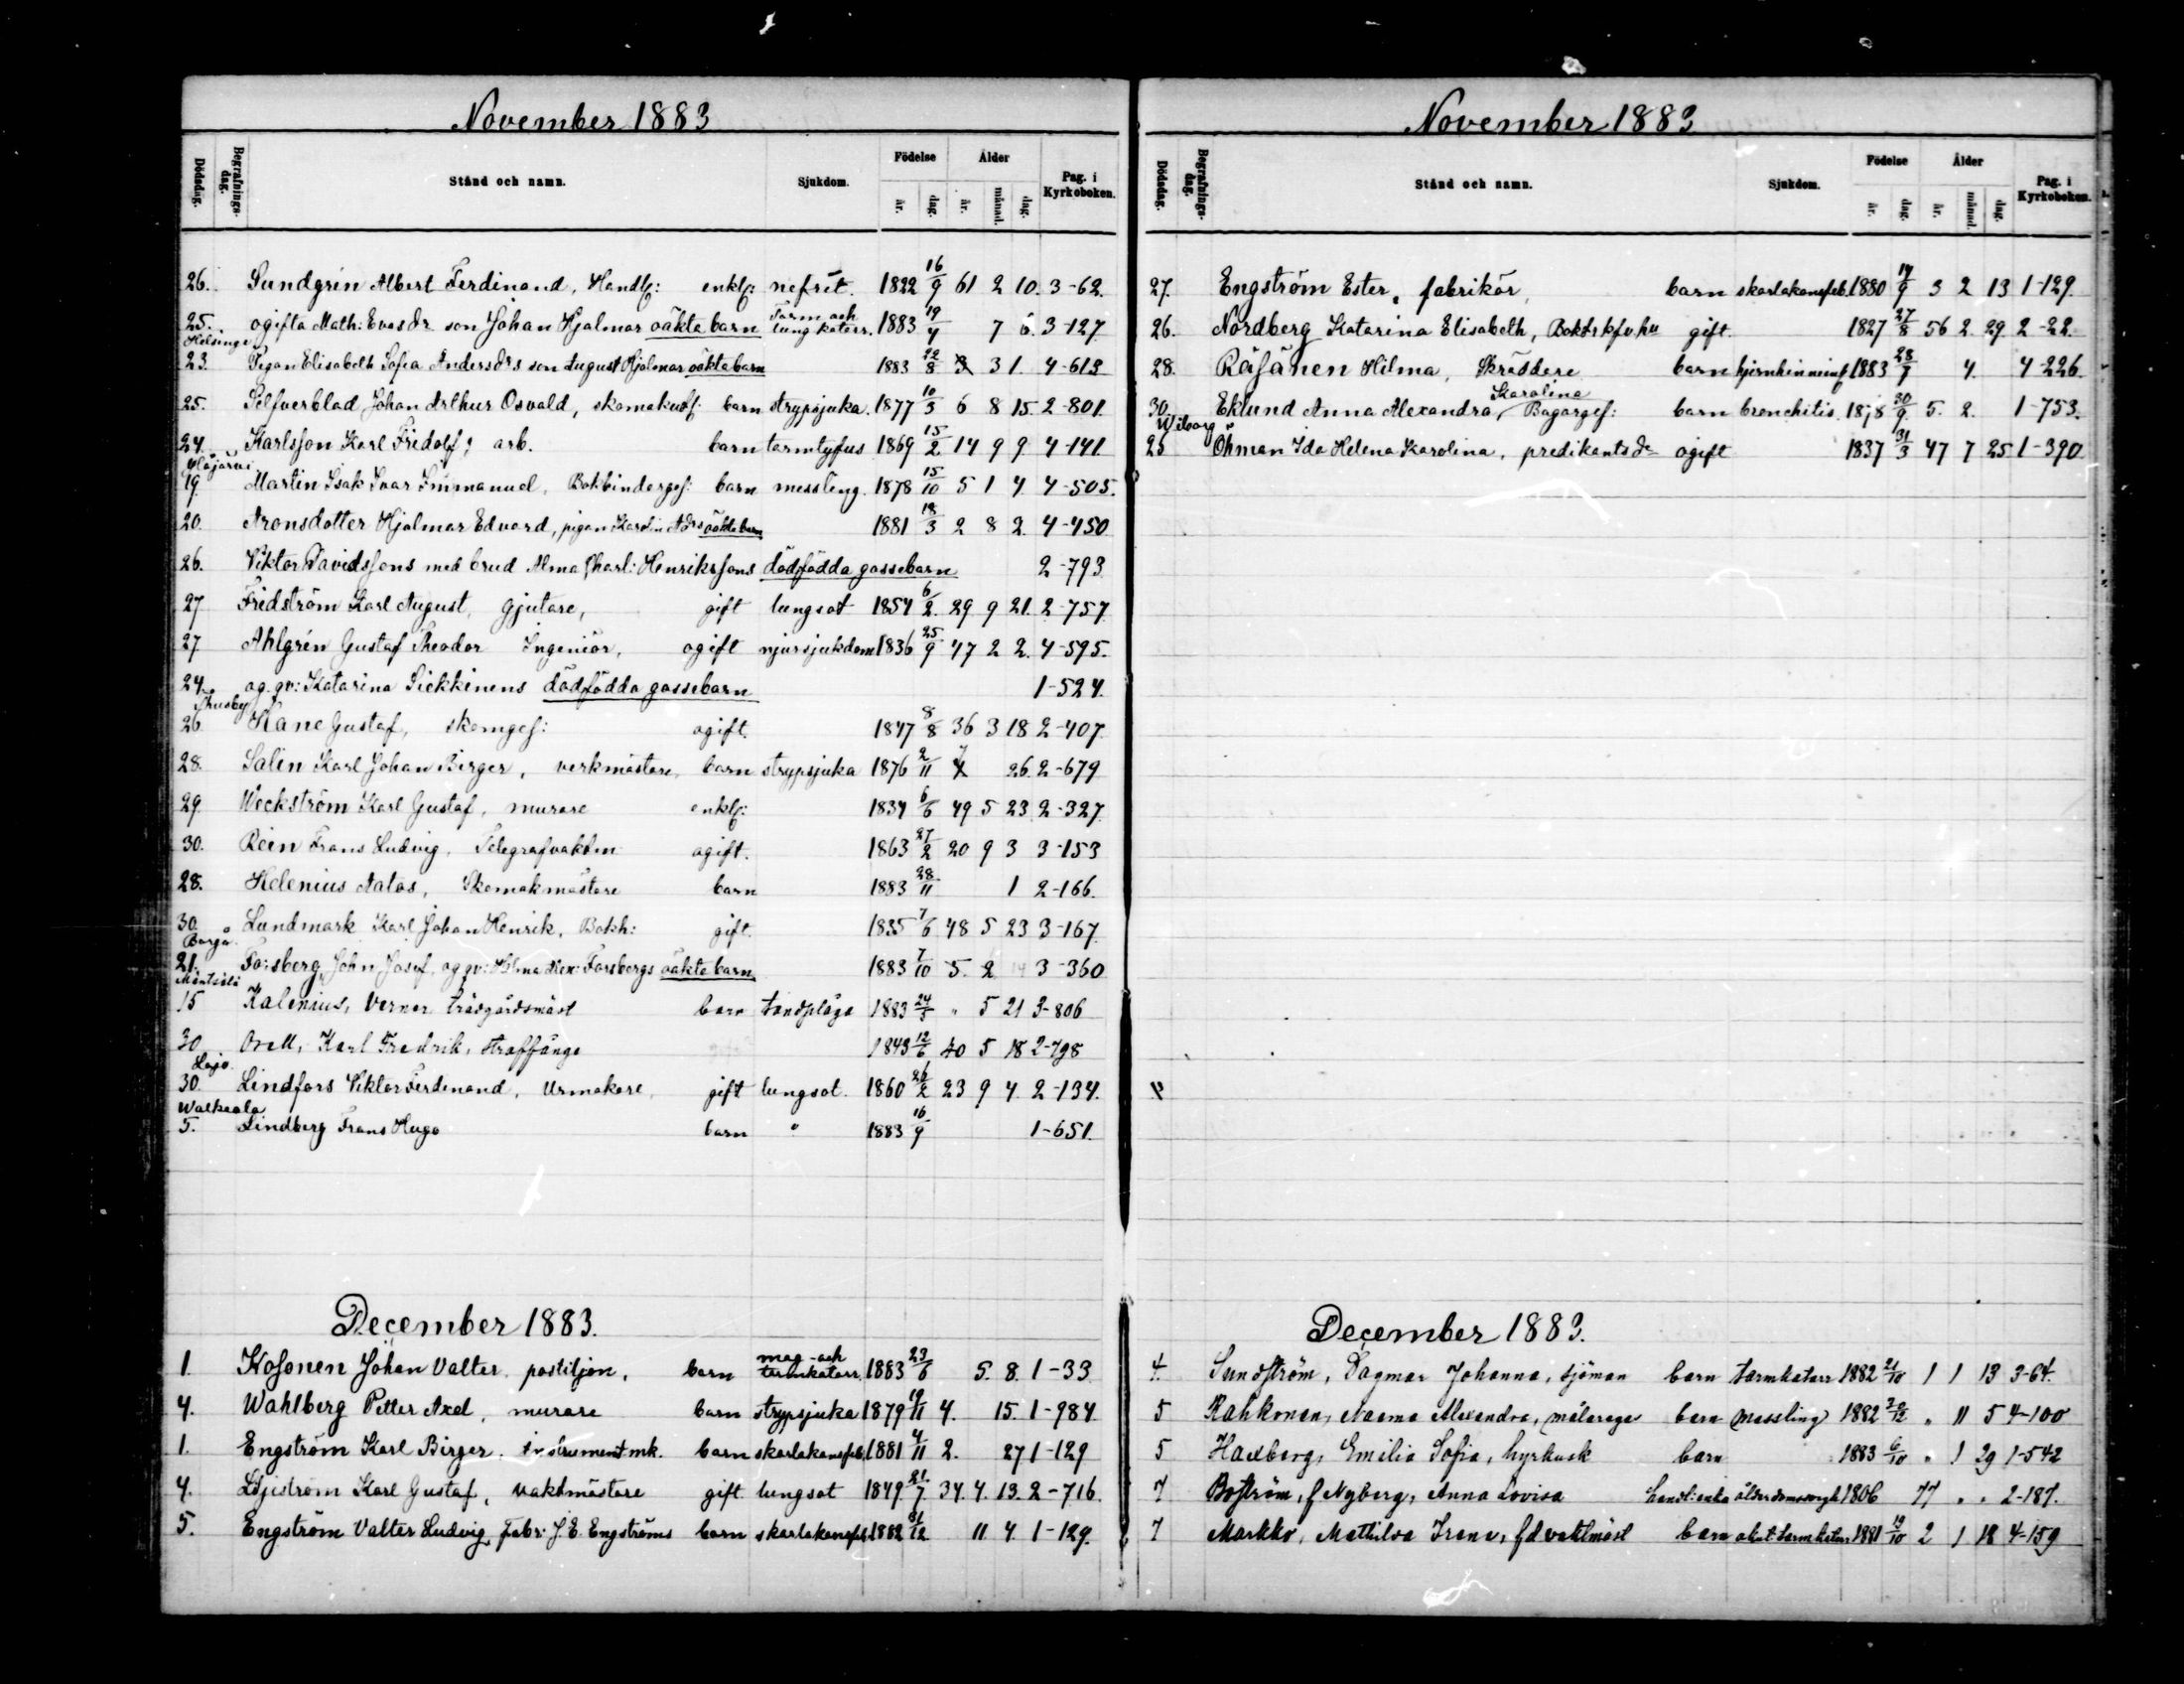 November 1883
Dödsdag. Begrafnings-dag. Stånd och namn. Sjukdom. Födelse år. dag. Ålder år. månad. dag. Pag. i Kyrkoboken.
26. Sundgrén Albert Ferdinand, Handl: enkl: nefrit. 1822 16/9 61 2 10. 3-62.
25. ogifta Math: Evasdr son Johan Hjalmar oäkta barn Tarm och lungkatarr. 1883 19/4 7 6. 3-127
Helsinge
23. Pigan Elisabeth Sofia Andersdrs son August Hjalmar oäkta barn 1883 22/8 3 1 4-613
25. Selfverblad, Johan Arthur Osvald, skomak barn strypsjuka. 1877 10/3 6 8 15. 2-801.
24. Karlsson Karl Fridolf, arb. barn tarmtyfus 1869 15/2 14 9 9 4-141
19. Martin Isak Ivar Immanuel, Bokbindarges: barn messling. 1878 15/10 5 1 4. 4-505.
20. Aronsdotter Hjalmar Edvard, pigan Karolin Adrs oäkta barn 1881 18/3 2 8 2. 4-450
26. Viktor Davidssons med brud Alma Charl: Henrikssons dödfödda gossebarn 2-793
27 Fridström Karl August, gjutare, gift lungsot 1854 6/2. 29 9 21. 2-757
27 Ahlgrén Gustaf Theodor Ingeniör, ogift njursjukdom 1836 25/9 47 2 2. 4-595.
24. og. qv: Katarina Siekkinens dödfödda gossebarn 1-524.
Thusby
26 Kane Gustaf, skomges: ogift. 1847 8/8 36 3 18 2-407
28. Salin Karl Johan Birger, verkmästare, barn strypsjuka 1876 2/11 7 26. 2-679
29. Weckström Karl Gustaf, murare enkl: 1834 6/6 49 5 23 2-327.
30. Rein Frans Ludvig, Telegrafvaktm ogift. 1863 27/2 20 9 3 3-153
28. Helenius Aatos, Skomakmästare barn 1883 28/11 1 2-166.
30. Lundmark Karl Johan Henrik, Bokh: gift. 1835 7/6 48 5 23 3-167.
Borgå
21. Forsberg John Josef, og qv: Hilma Alex: Forsbergs oäkta barn 1883 7/10 5. 2 14 3-360
Mäntsälä
15 Kalenius, Verner trädgårdsmäst barn tandplåga 1883 24/5 " 5 21 3-806
30 Orell, Karl Fredrik, straffånge 1843 12/6 40 5 18 2-798
Lojo
30. Lindfors Viktor Ferdinand, Urmakare, gift lungsot. 1860 26/2 23 9 4. 2-134.
Walkeala
5. Lindberg Frans Hugo barn " 1883 16/9 1-651.
December 1883.
1. Kosonen Johan Valter, postiljon, barn mag-och tarmkatarr. 1883 23/6 5. 8. 1-33
4. Wahlberg Petter Axel, murare barn strypsjuka 1879 19/11 4. 15. 1-984
1. Engström Karl Birger, instrument mk. barn skarlakansfeb. 1881 4/11 2. 27 1-129
4. Karl Gustaf, vaktmästare gift lungsot 1849 21/7 34. 4. 13. 2-716.
5. Engström Valter Ludvig, Fabr: J. E. Engströms barn skarlakansfeb. 1882 31/12 11. 4. 1-129.
November 1883
Dödsdag. Begrafnings-dag. Stånd och namn. Sjukdom. Födelse år. dag. Ålder år. månad. dag. Pag. i Kyrkoboken.
27. Engström Ester, fabrikör, barn skarlakansfeb. 1880 14/9 3 2 13 1-129.
26. Nordberg Katarina Elisabeth, gift. 1827 27/8 56 2. 29. 2-22.
28. Räsänen Hilma, Skräddare barn hjernhinneinf. 1883 28/7 4. 4-226.
30. Eklund Anna Alexandra Karolina, Bagarges: barn bronchitis. 1878 30/9 5. 2. 1-753.
Wiborg
25 Öhman Ida Helena Karolina, predikants dr ogift 1837 31/3 47 7 25 1-390
December 1883.
4. Sundström, Dagmar Johanna, sjöman barn tarmkatarr 1882 21/10 1 1 13 3-64.
5 Kahkonen, Naema Alexandra, målarage barn messling 1882 30/12 " 11 5 4-100
5 Haxberg, Emilia Sofia, hyrkusk barn 1883 6/10 " 1 29 1-542
7 Boström, f Nyberg, Anna Lovisa handl: enka ålderdomssvagh. 1806 77 " " 2-187.
7 Markko, Mathilda Irene, fd vaktmäst barn akut tarmkatarr 1881 19/10 2 1 18 4-159